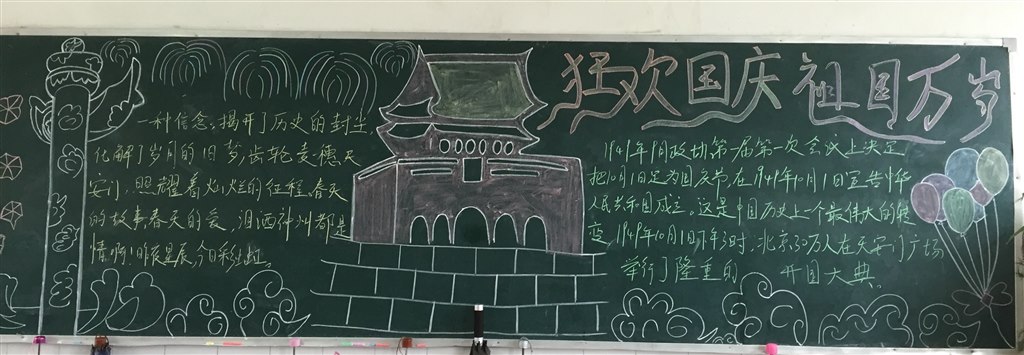 狂欢国庆 祖国万岁
一种信念,揭开了历史的封尘,
化解了岁月的旧梦,齿轮麦穗天
安门,照耀着灿烂的征程,春天
的故事,春天的爱,洒神州都是
情啊!昨夜星辰,今日彩虹。
1949年9月政协第一届第一次会议上决定
把10月1日定为国庆节,在1949年10月1日宣告中华
人民共和国成立。这是中国历史上一个最伟大的转
变,1949年10月1日下午3时,北京30万人在天安门广场
举行了隆重的 开国大典。